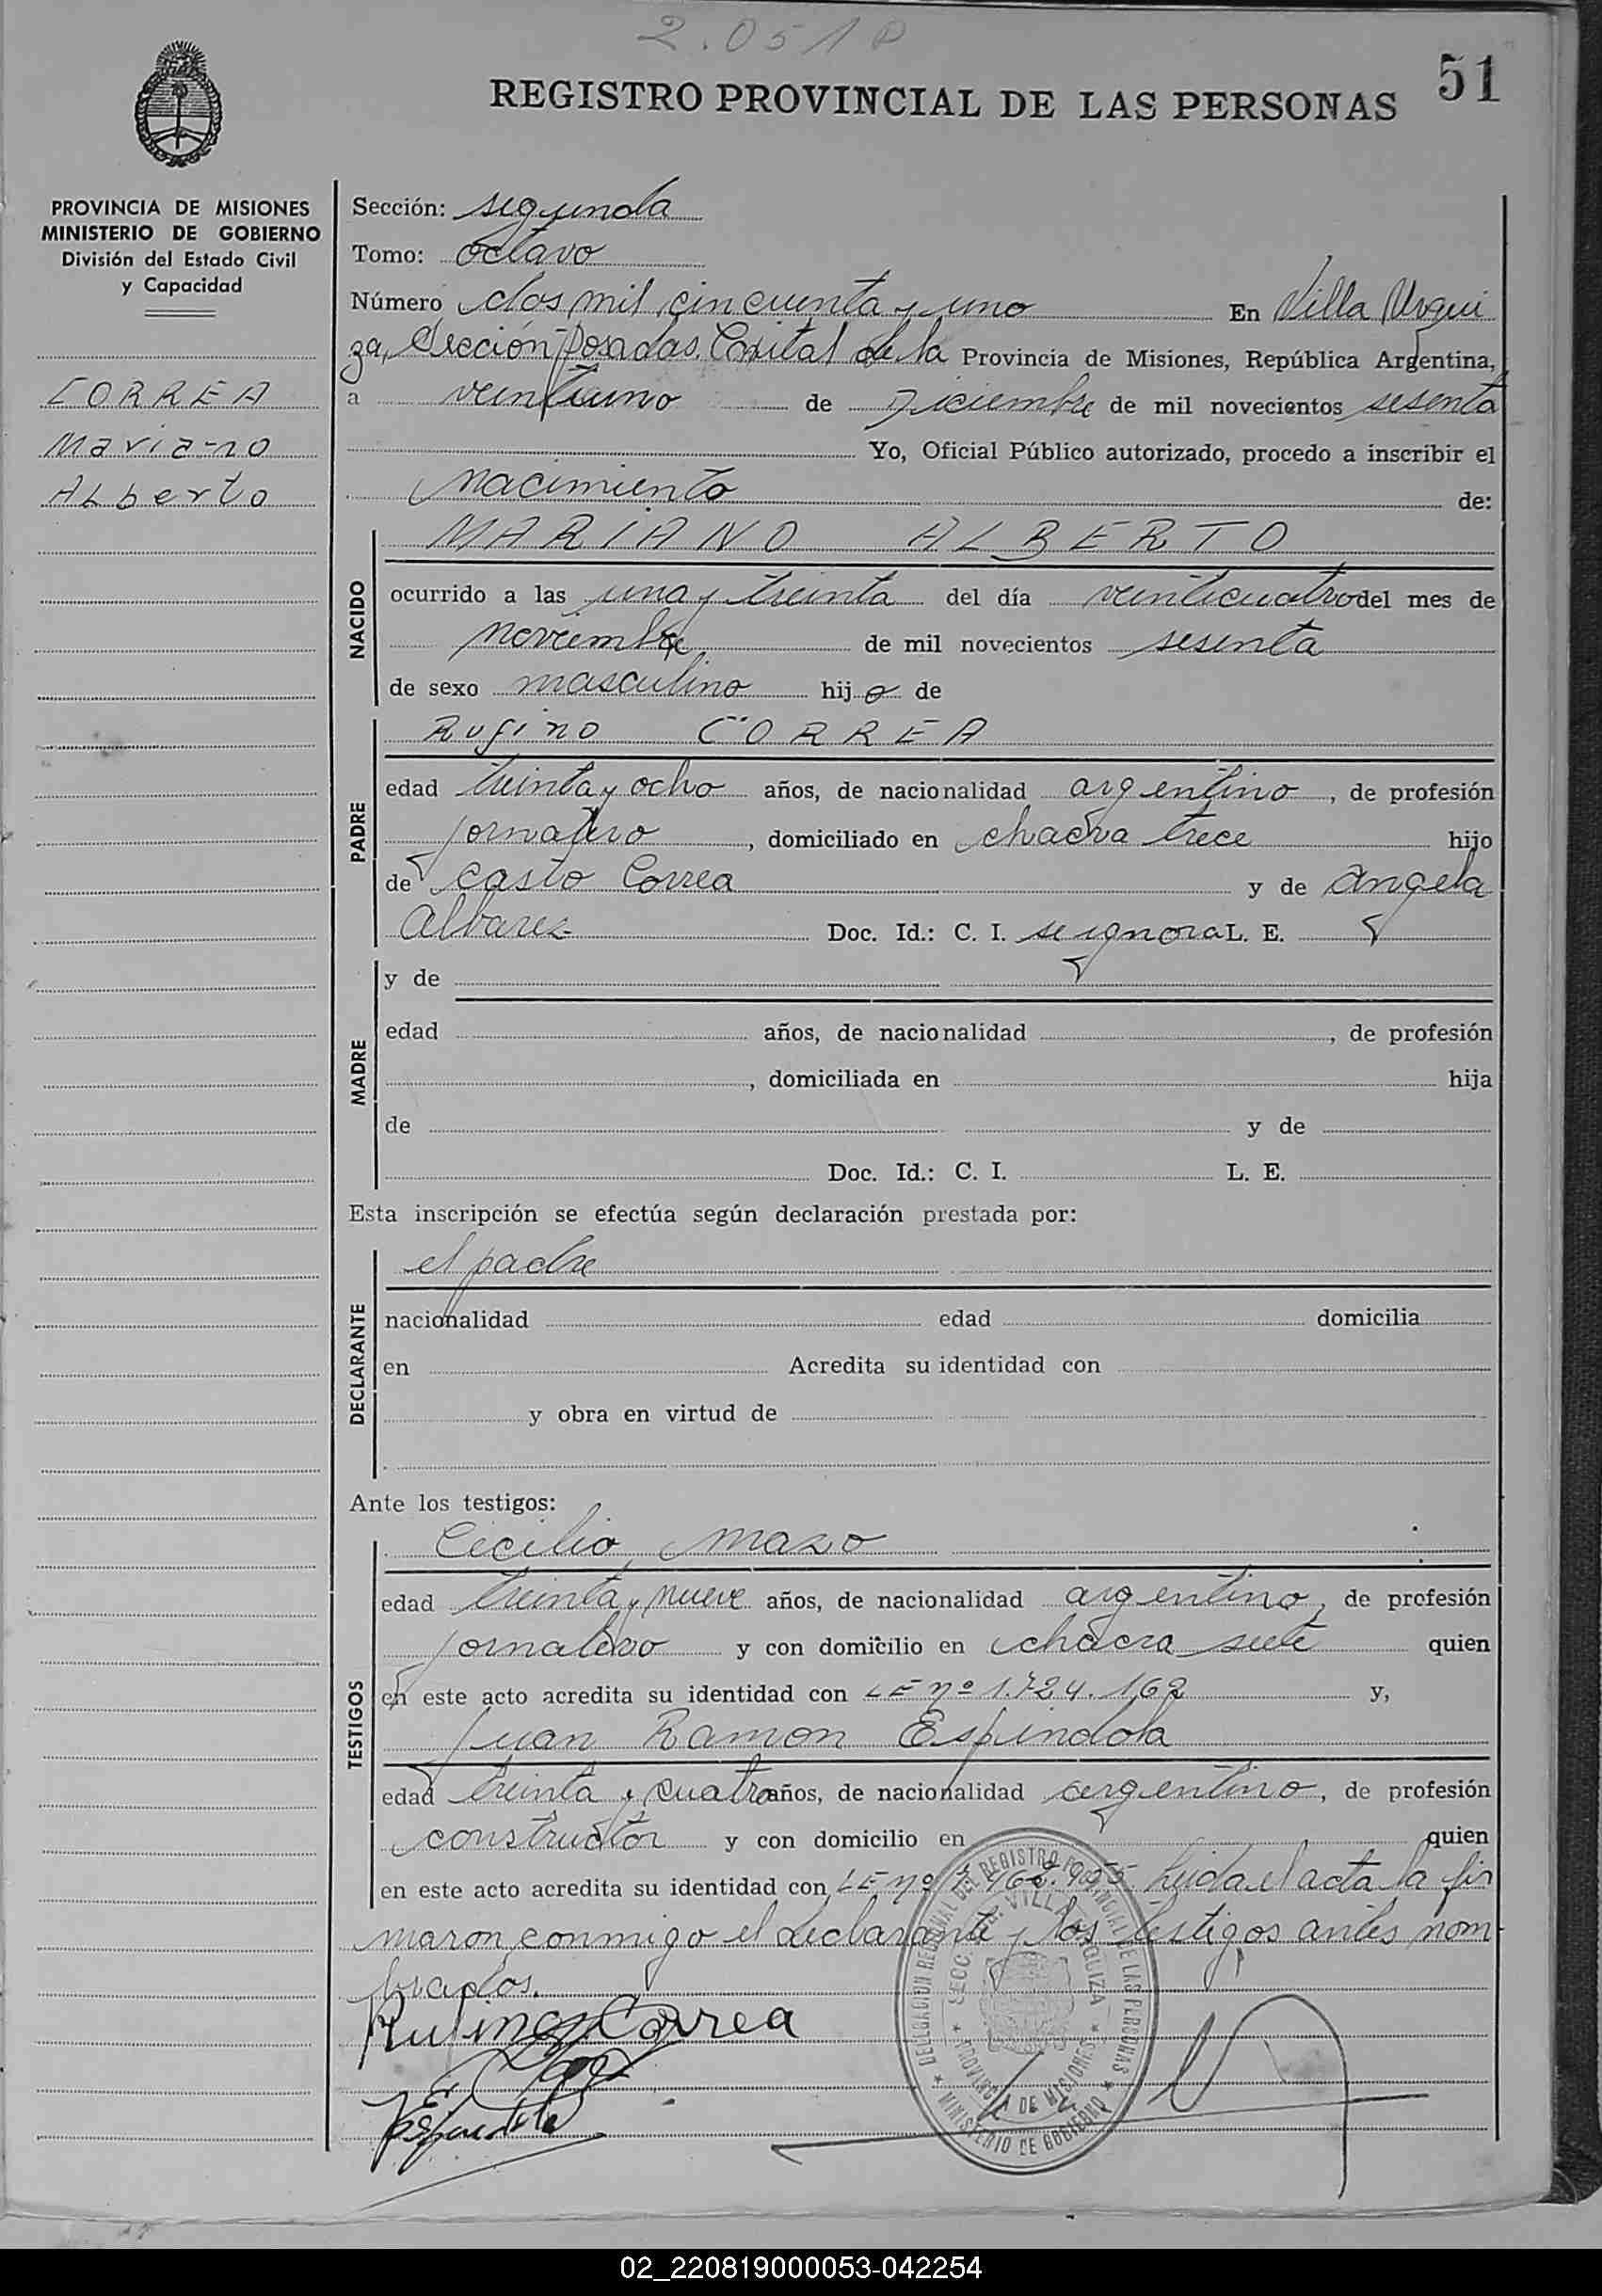 2.051 P
51
REGISTRO PROVINCIAL DE LAS PERSONAS
PROVINCIA DE MISIONES
MINISTERIO DE GOBIERNO
División del Estado Civil
y Capacidad
CORREA
Mariano
Alberto
Sección: segunda
Tomo: octavo
Número dos mil cincuenta y uno En Villa Urqui
za, Sección Posadas Capital de la Provincia de Misiones, República Argentina,
a veintiuno de Diciembre de mil novecientos sesenta
Yo, Oficial Público autorizado, procedo a inscribir el
nacimiento de:
NACIDO
MARIANO ALBERTO
ocurrido a las una y treinta del día veinticuatro del mes de
noviembre de mil novecientos sesenta
de sexo masculino hijo de
PADRE
Rufino CORREA
edad treinta y ocho años, de nacionalidad argentino, de profesión
jornalero, domiciliado en chacra trece hijo
de Casto Correa y de Angela
Albarez Doc. Id.: C. I. se ignora L. E.
MADRE
y de
edad años, de nacionalidad , de profesión
, domiciliada en hija
de y de
Doc. Id.: C. I. L. E.
Esta inscripción se efectúa según declaración prestada por:
DECLARANTE
el padre
nacionalidad edad domicilia
en Acredita su identidad con
y obra en virtud de
Ante los testigos:
TESTIGOS
Cecilio Mazo
edad treinta y nueve años, de nacionalidad argentino, de profesión
jornalero y con domicilio en chacra siete quien
en este acto acredita su identidad con LE nº 1.724.162 y,
Juan Ramon Espindola
edad treinta y cuatro años, de nacionalidad argentino, de profesión
constructor y con domicilio en quien
en este acto acredita su identidad con LE nº Leida el acta la fir
maron conmigo el declarante y los testigos antes nom
brados.
Rufino Correa
DELEGACION REGIONAL DEL REGISTRO PROVINCIAL DE LAS PERSONAS
SECC. VILLA URQUIZA
PROVINCIA DE MISIONES
MINISTERIO DE GOBIERNO
02_220819000053-042254